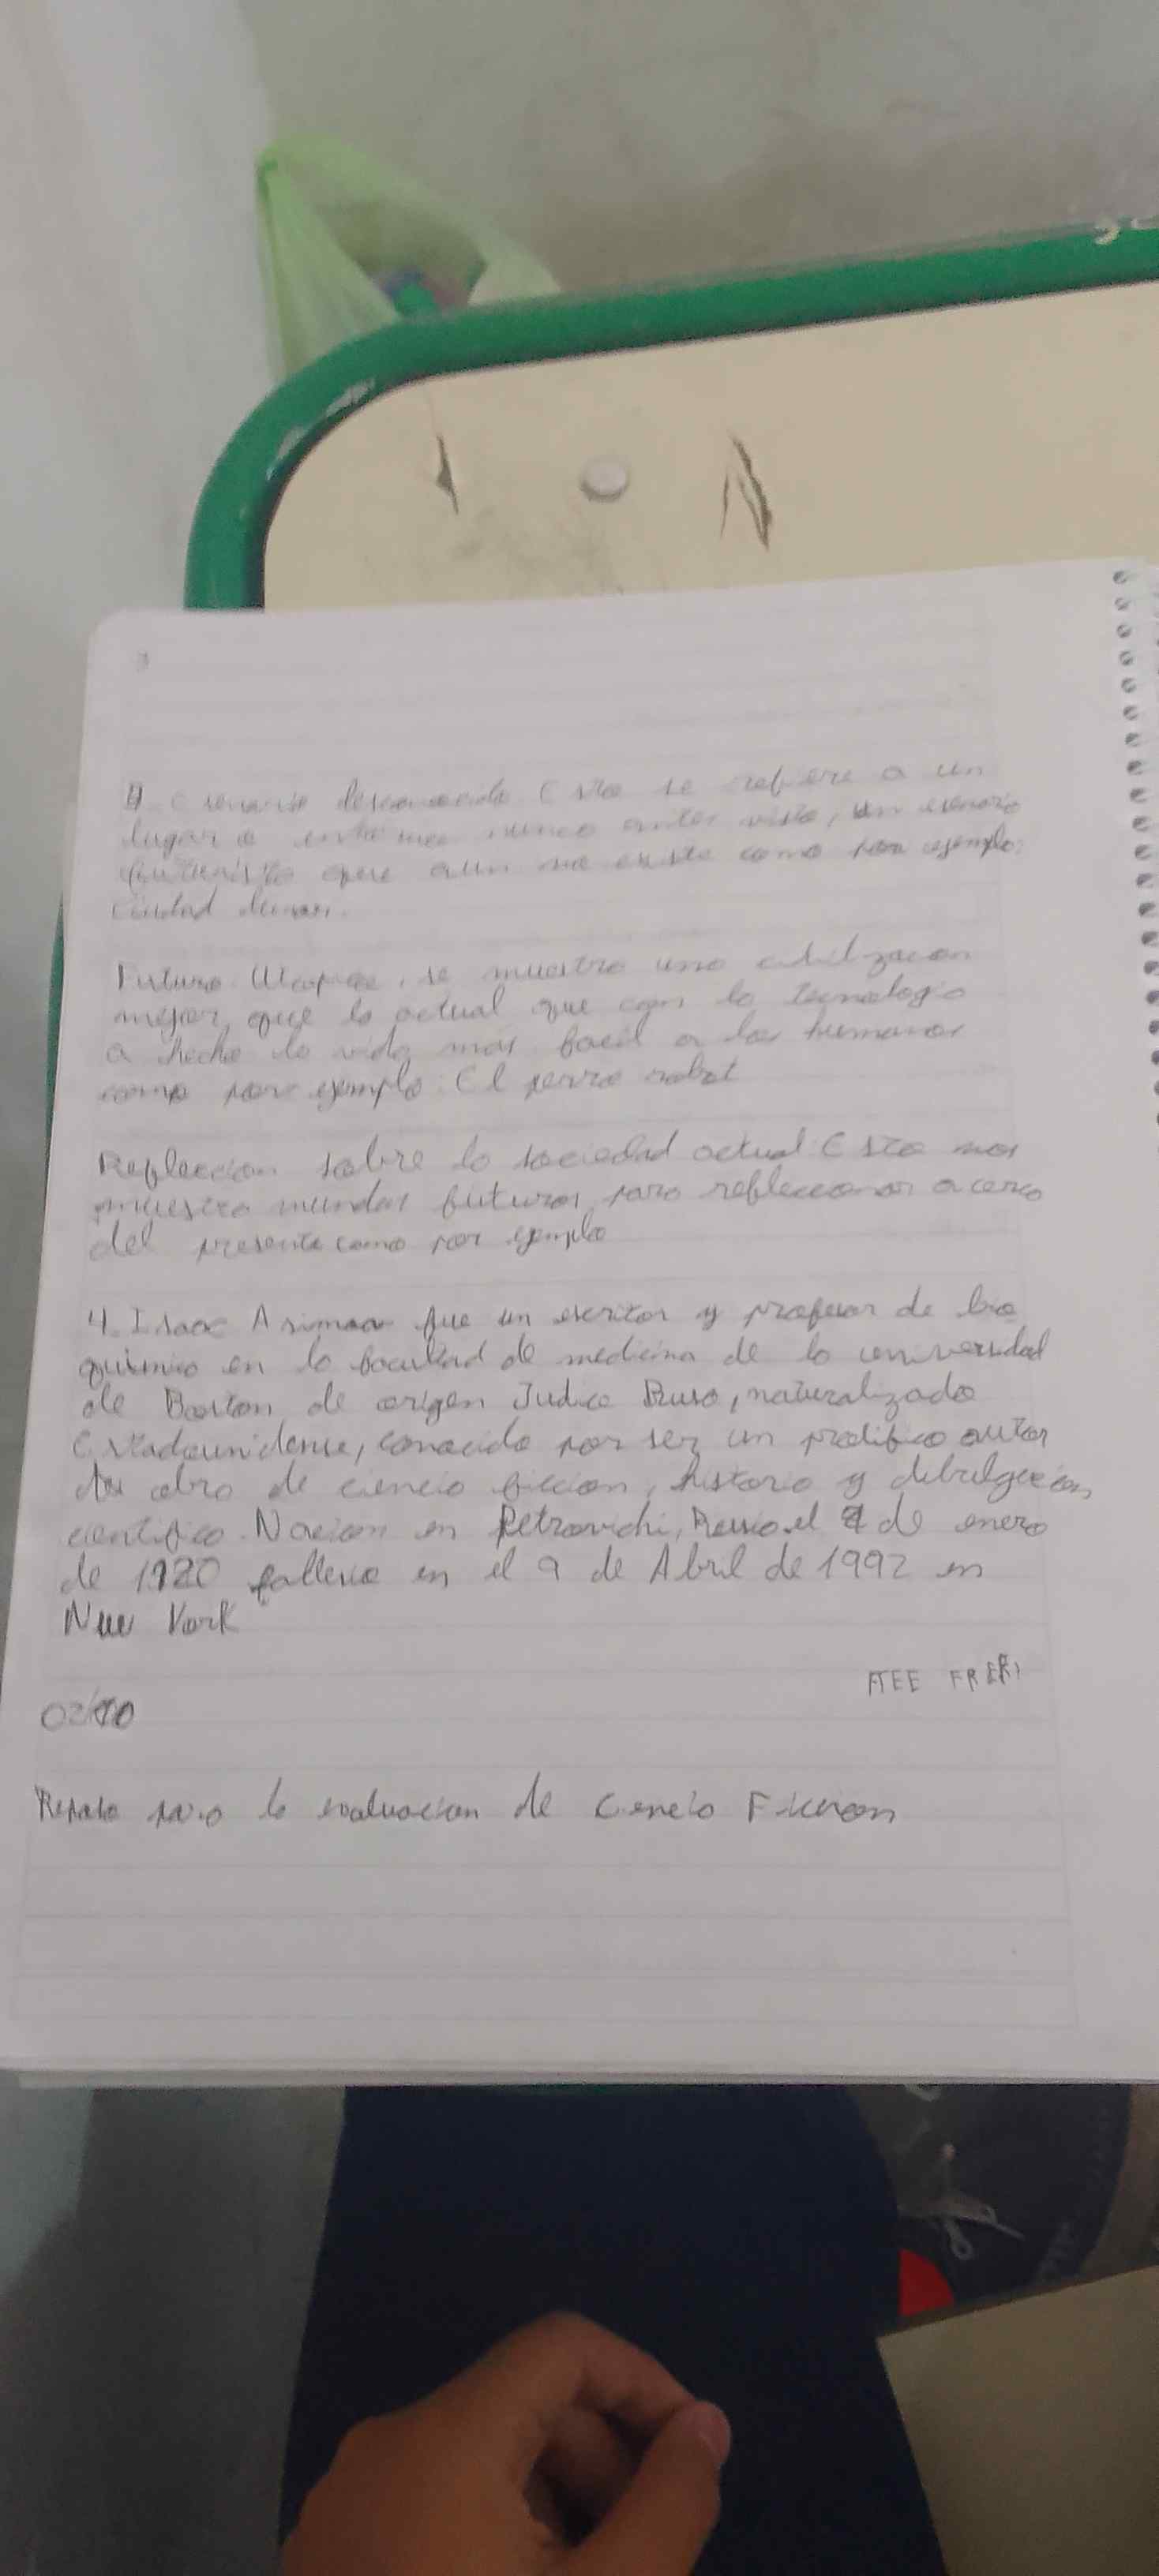 Esenario desconocido Esto se refiere a un
lugar o nunca antes visto, un esenario
futuristo que aun no existe como por ejemplo:
Ciudad
Futuro se muestra una
mejor que la actual que con la tecnologia
a hecho la vida mas facil a los humanos
como por ejemplo: El perro robot
Refleccion sobre la sociedad actual Esto nos
muestra mundos futuros para refleccionar acerca
del presente como por ejemplo
4. Isaac Asimov fue un escritor y profesor de bio
quimica en la facultad de medicina de la universidad
de Boston, de origen Judio Ruso, naturalizado
Estadounidense, conocido por ser un prolifico autor
de obra de ciencia ficcion, historia y
cientifica. en Petrovichi, Rusia el de enero
de 1920 fallecio en el 9 de Abril de 1992 en
New York
ATEE FRERI
02/10
Repaso para la evaluacion de Ciencia Ficcion